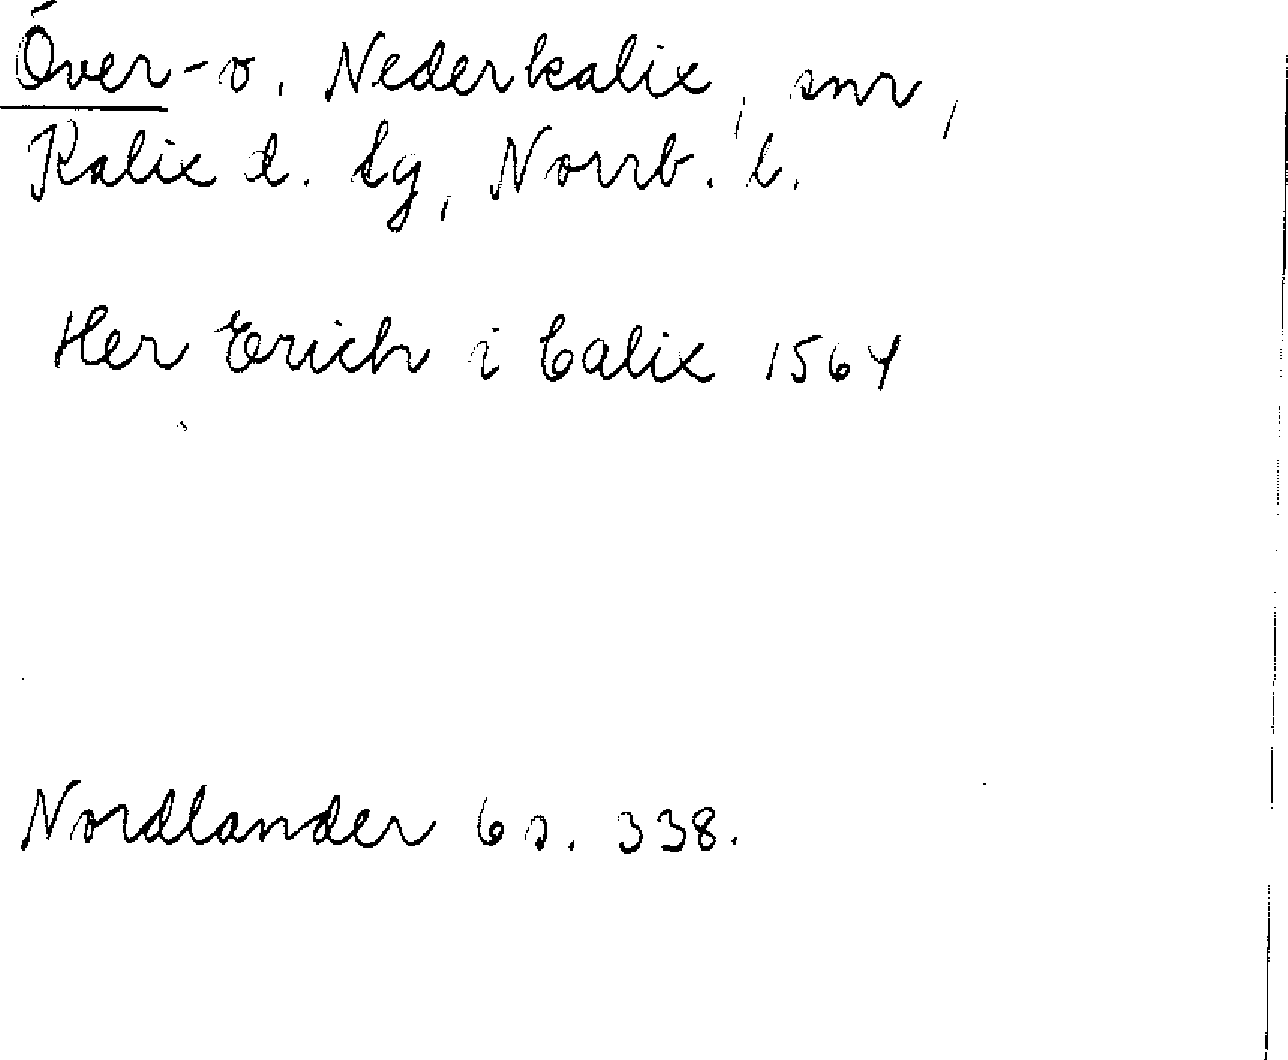 Över- o. Nederkalix, snr,
Kalix d. lg, Norrb. l.
Her Erich i Calix 1564
Nordlander 6 s. 338.